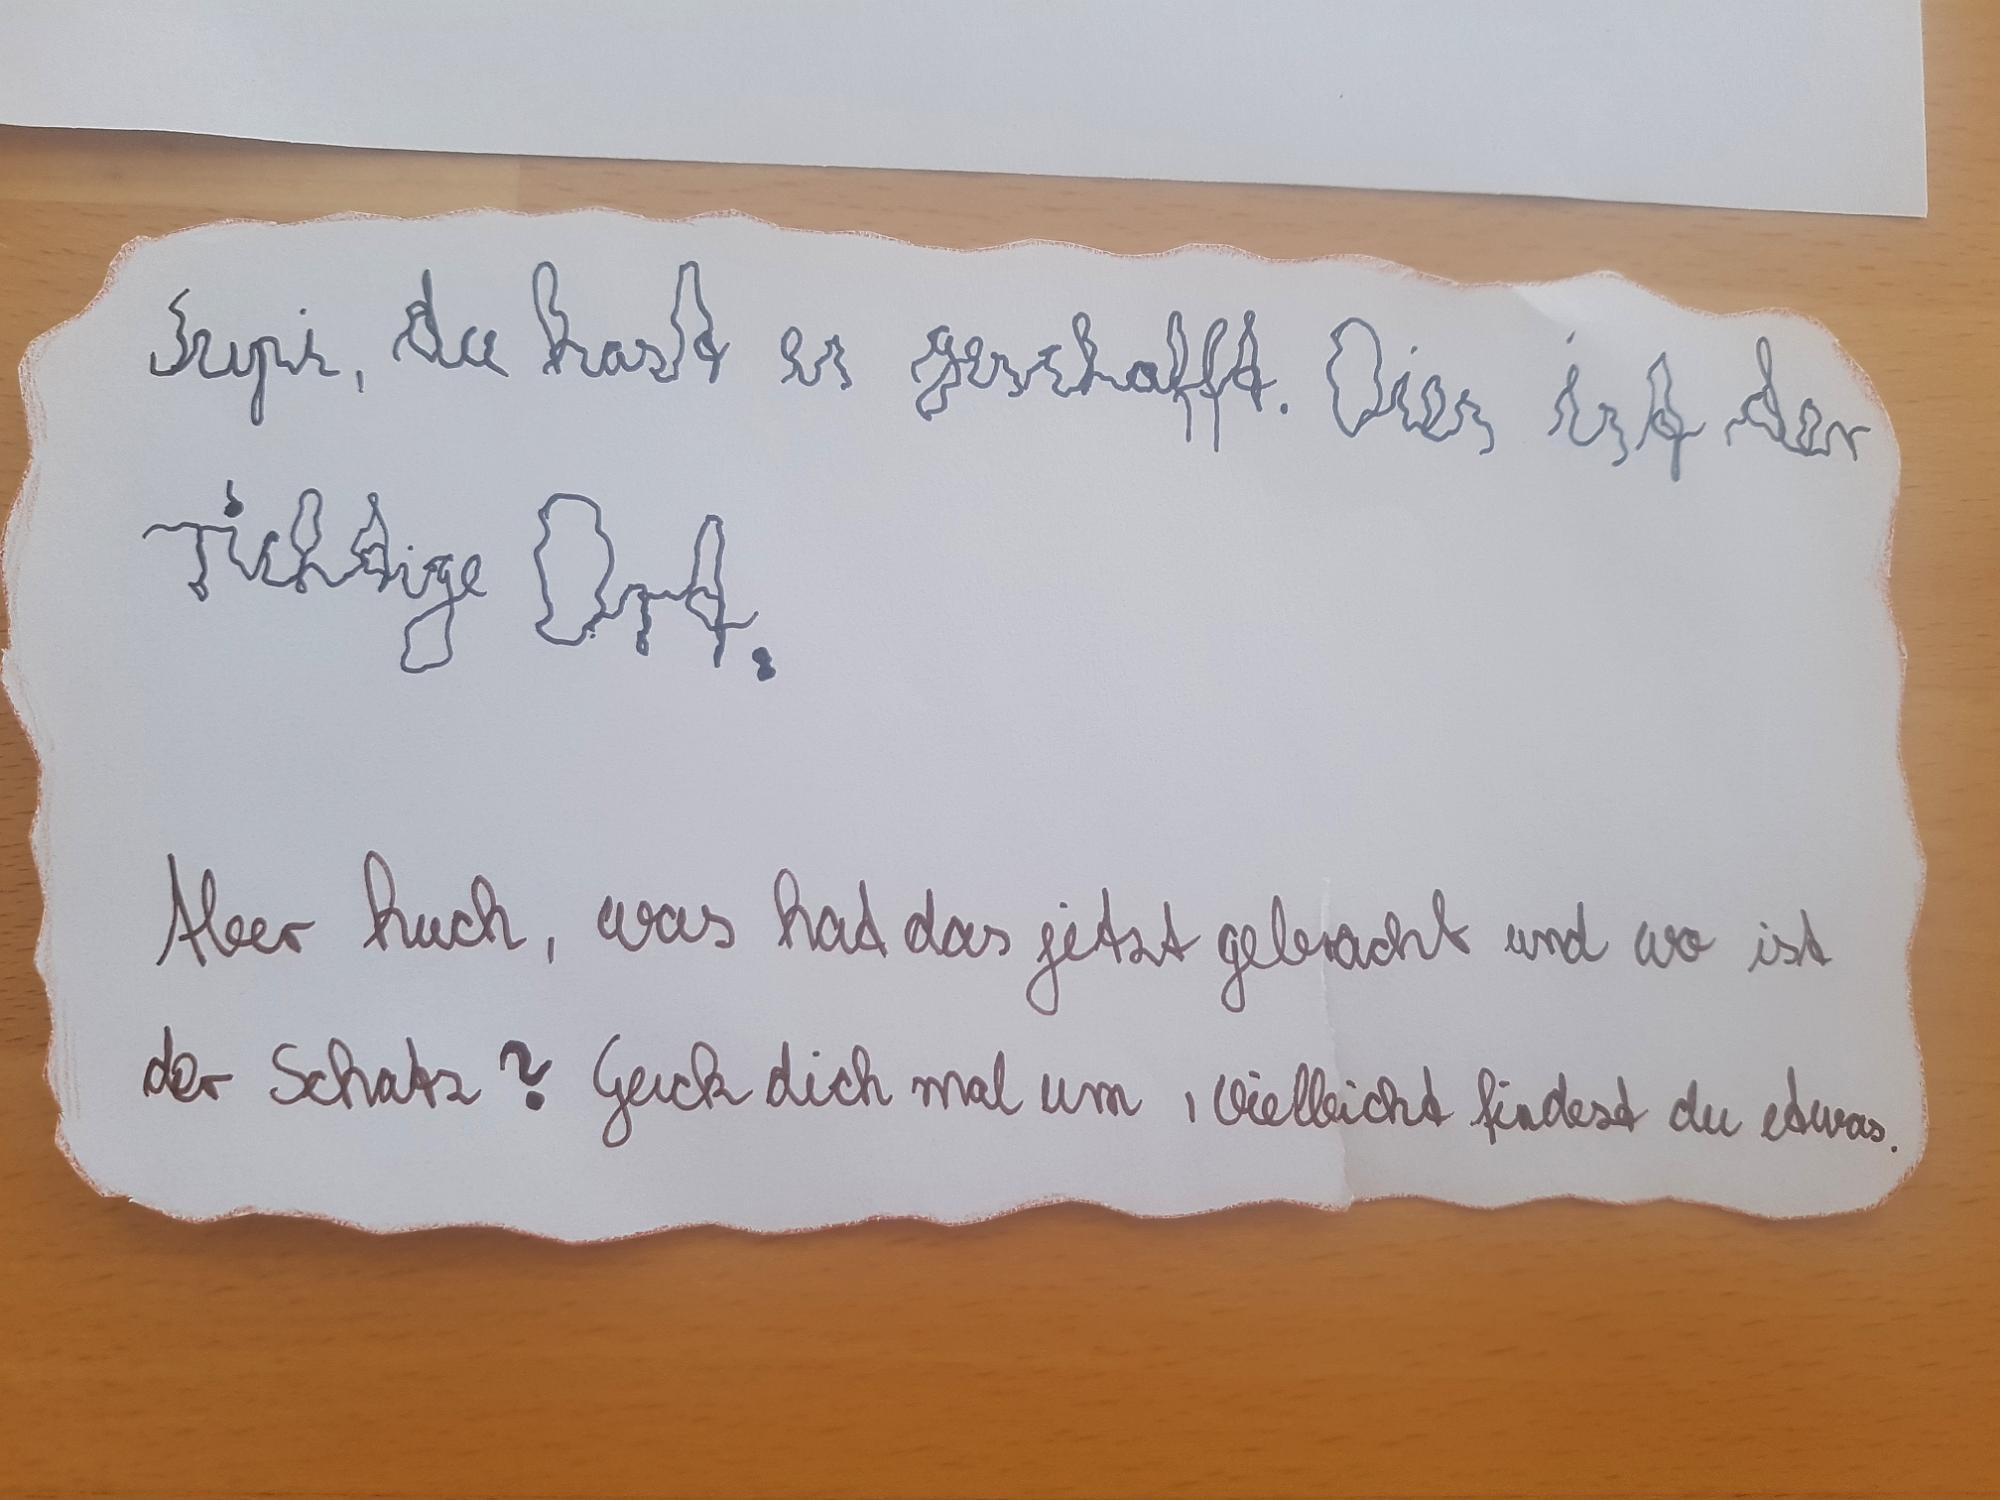 Supi, du hast es geschafft. Dies ist der
richtige Ort.
Aber huch, was hat das jetzt gebracht und wo ist
der Schatz? Guck dich mal um, vielleicht findest du etwas.